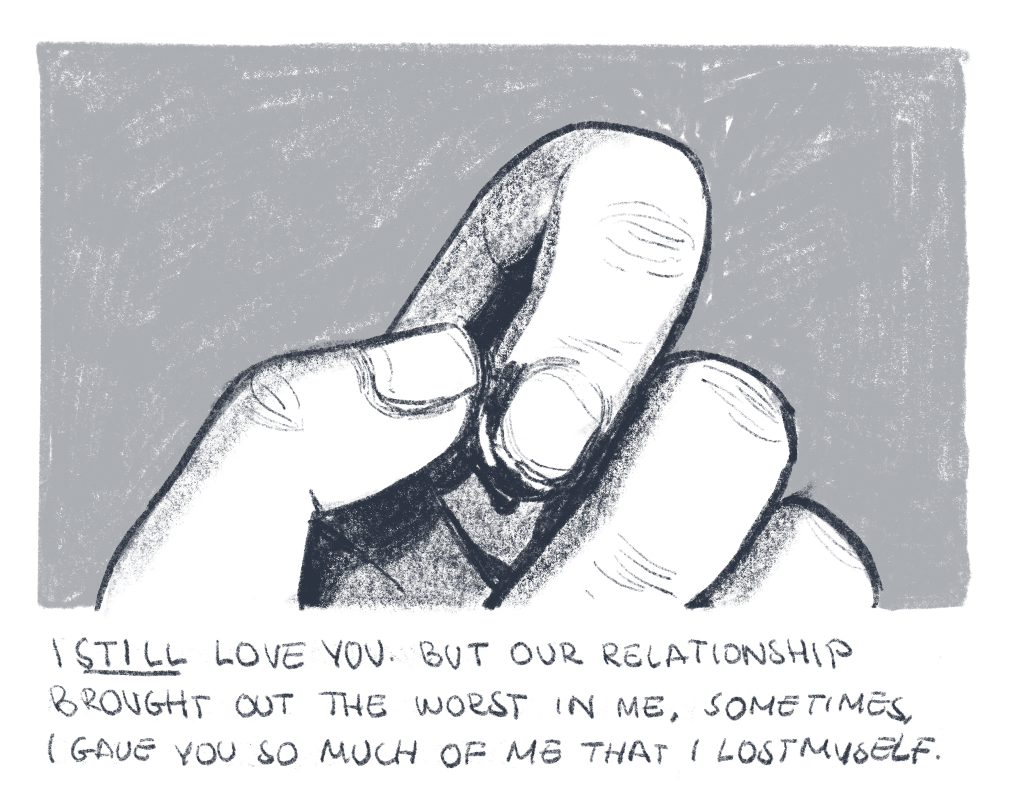 I STILL LOVE YOU. BUT OUR RELATIONSHIP
BROUGHT OUT THE WORST IN ME, SOMETIMES,
I GAVE YOU SO MUCH OF ME THAT I LOST MYSELF.